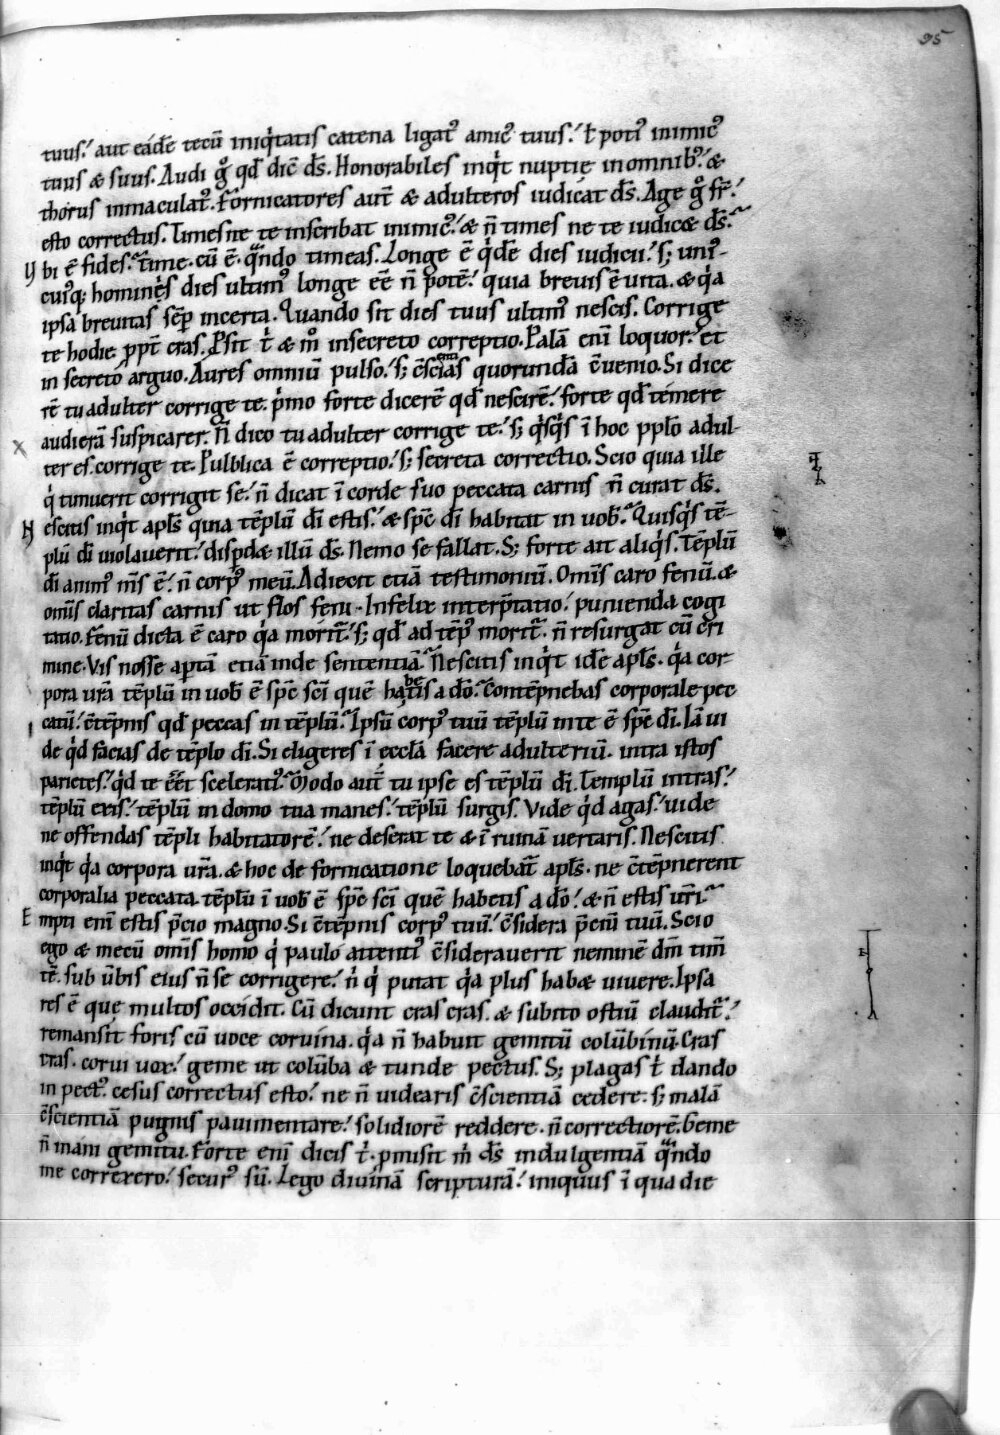 95
tuus. aut eadē tecū iniq̇tatis catena ligatꝰ amicꝰ tuus. ł potiꝰ inimicꝰ
tuus & suus. Audi g̊ qd̄ dic̄ dſ̄. Honorabiles inqͥt nuptię in omnibꝰ. &
thorus inmaculatꝰ. Fornicatores aut̄ & adulteros iudicat dſ̄. Age g̊ fr̄.
esto correctus. Times ne te inscribat inimicꝰ. & n̄ times ne te iudic& dſ̄.
Ubi ē fides. time. cū ē. qᵃndo timeas. Longe ē qͥdē dies iudicii. s; uniꝰ-
cuiꝰq; hominis dies ultimꝰ longe eē n̄ potē. quia breuis ē uita. & qͥa
ipsa breuitas sēp incerta. Quando sit dies tuus ultimꝰ nescis. Corrige
te hodie ꝓpt̄ cras. Psit t̄ & m̊ in secreto correptio. Palā enī loquor. et
in secreto arguo. Aures omniū pulso. s; c̄sciencias quorundā c̄uenio. Si dice
rē tu adulter corrige te. pͥmo forte dicerē qd̄ nescirē. forte qd̄ temere
audierā suspicarer. N̄ dico tu adulter corrige te. s; qͥsqͥs ī hoc ppl̄o adul-
ter es. corrige te. Pulblica ē correptio. s; secreta correctio. Scio quia ille
qͥ timuerit corrigit se. n̄ dicat ī corde suo peccata carnis n̄ curat dſ̄.
Nescitis inqͥt apl̄s quia tēplū dī estis. & sp̄c dī habitat in uob̄. Quisqͥs tē-
plū dī uiolauerit. disꝑd& illū dſ̄. Nemo se fallat. S; forte ait aliqͥs. Tēplū
dī animꝰ nr̄s ē. n̄ corpꝰ meū. Adiecit etiā testimoniū. Omīs caro fenū. &
omīs claritas carnis ut flos feni. Infelix interp̄tatio. punienda cogi
tatio. Fenū dicta ē caro qͥa morit̄. s; qd̄ ad tēpꝰ morit̄. n̄ resurgat cū cri
mine. Vis nosse aptā etiā inde sententiā. Nescitis inqͥt idē apl̄s. qͥa cor-
pora ur̄a tēplū in uob̄ ē sp̄c scī quē habetis a dō. Contēpnebas corporale pec
catū. c̄tēpnis qd̄ peccas in tēplū. Ipsū corpꝰ tuū tēplū in te ē sp̄c dī. Iā ui
de qͥd facias de tēplo dī. Si eligeres ī eccl̄a facere adulteriū. intra istos
parietes. qͥd te eēt sceleratiꝰ. Modo aut̄ tu ipse es tēplū dī. Templū intras.
tēplū exis. tēplū in domo tua manes. tēplū surgis. Vide qͥd agas. uide
ne offendas tēpli habitatorē. ne deserat te & ī ruinā uertaris. Nescitis
inqͥt qͥa corpora ur̄a. & hoc de fornicatione loquebat̄ apl̄s. ne c̄tēpnerent
corporalia peccata. tēplū ī uob̄ ē sp̄c scī quē habetis a dō. & n̄ estis ur̄i.
Empti enī estis p̄cio magno. Si c̄tēpnis corpꝰ tuū. c̄sidera p̄ciū tuū. Scio
ego & mecū omīs homo qͥ paulo attentiꝰ c̄siderauerit neminē dm̄ tim̄
tē. sub ūbis eius n̄ se corrigere. n̄ qͥ putat qͥa plus hab& uiuere. Ipsa
res ē que multos occidit. Cū dicunt cras cras. & subito ostiū claudit̄.
remansit foris cū uoce coruina. qͥa n̄ habuit gemitū colūbinū. Cras
cras. corui uox. geme ut colūba & tunde pectus. S; plagas t̄ dando
in pectꝰ. cesus correctus esto. ne n̄ uidearis c̄scientiā cedere. s; malā
c̄scientiā pugnis pauimentare. solidiorē reddere. n̄ correctiorē. Geme
n̄ inani gemitu. Forte enī dicis t̄. ꝓmisit m̄ dſ̄ indulgentiā qᵃndo
me correxero. securꝰ sū. Lego diuinā scripturā. iniquus ī qua die